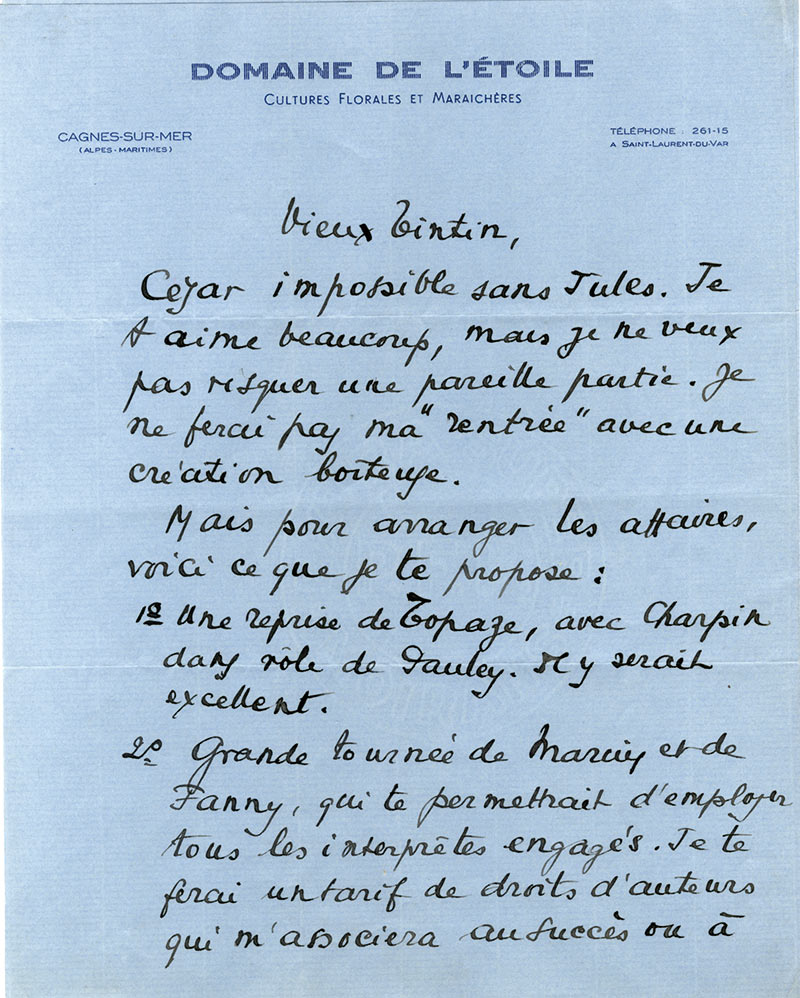 DOMAINE DE L'ÉTOILE
CULTURES FLORALES ET MARAICHÈRES
CAGNES-SUR-MER
(ALPES-MARITIMES)
TÉLÉPHONE : 261-15
A SAINT-LAURENT-DU-VAR
Vieux Tintin,
César impossible sans Jules. Je
t'aime beaucoup, mais je ne veux
pas risquer une pareille partie. Je
ne ferai pas ma "rentrée" avec une
création boiteuse.
Mais pour arranger les affaires,
voici ce que je te propose :
1º Une reprise de Topaze, avec Charpin
dans rôle de Dauley. Il y serait
excellent.
2º Grande tournée de Marius et de
Fanny, qui te permettrait d'employer
tous les interprètes engagés. Je te
ferai un tarif de droits d'auteurs
qui m'associera au succès ou à